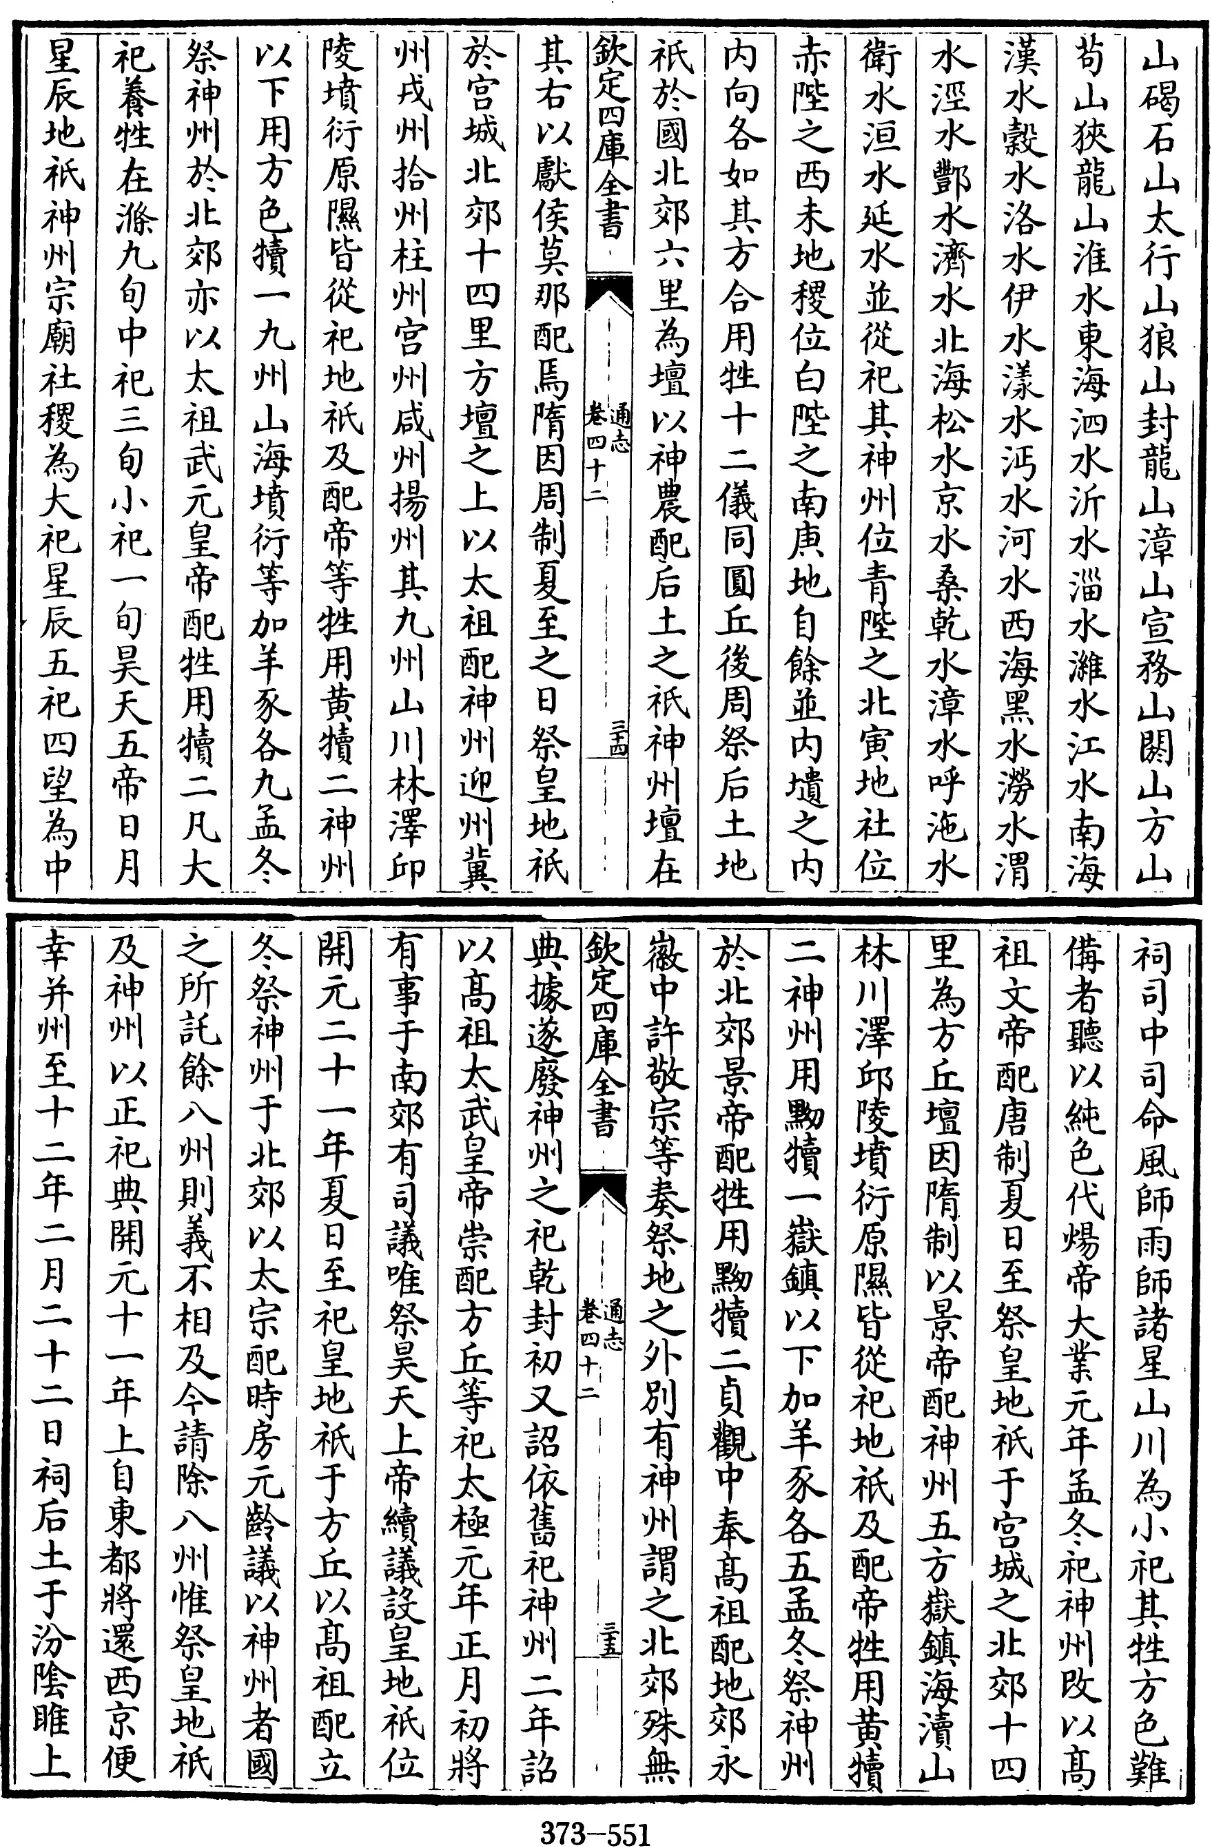 山碣石山太行山狼山封龍山漳山宣務山閼山方山
茍山狹龍山淮水東海泗水沂水淄水濰水江水南海
漢水糓水洛水伊水漾水沔水河水西海黑水澇水渭
水涇水酆水濟水北海松水京水桑乾水漳水呼沲水
衛水洹水延水並從祀其神州位青陛之北寅地社位
赤陛之西未地稷位白陛之南庚地自餘並内壝之内
内向各如其方合用牲十二儀同圓丘後周祭后土地
祇於國北郊六里為壇以神農配后土之祇神州壇在
欽定四庫全書
通志
卷四十二
三十四
其右以獻侯莫那配焉隋因周制夏至之日祭皇地祇
於宫城北郊十四里方壇之上以太祖配神州迎州冀
州戎州拾州柱州宫州咸州揚州其九州山川林澤邱
陵墳衍原隰皆從祀地祇及配帝等牲用黄犢二神州
以下用方色犢一九州山海墳衍等加羊豕各九孟冬
祭神州於北郊亦以太祖武元皇帝配牲用犢二凡大
祀養牲在滌九旬中祀三旬小祀一旬昊天五帝日月
星辰地祇神州宗廟社稷為大祀星辰五祀四望為中
祠司中司命風師雨師諸星山川為小祀其牲方色難
備者聽以純色代煬帝大業元年孟冬祀神州改以髙
祖文帝配唐制夏日至祭皇地祇于宫城之北郊十四
里為方丘壇因隋制以景帝配神州五方嶽鎮海瀆山
林川澤邱陵墳衍原隰皆從祀地祇及配帝牲用黄犢
二神州用黝犢一嶽鎮以下加羊豕各五孟冬祭神州
於北郊景帝配牲用黝犢二貞觀中奉髙祖配地郊永
徽中許敬宗等奏祭地之外别有神州謂之北郊殊無
欽定四庫全書
通志
卷四十二
三十五
典據遂廢神州之祀乾封初又詔依舊祀神州二年詔
以髙祖太武皇帝崇配方丘等祀太極元年正月初將
有事于南郊有司議唯祭昊天上帝續議設皇地祇位
開元二十一年夏日至祀皇地祇于方丘以髙祖配立
冬祭神州于北郊以太宗配時房元齡議以神州者國
之所託餘八州則義不相及今請除八州惟祭皇地祇
及神州以正祀典開元十一年上自東都將還西京便
幸并州至十二年二月二十二日祠后土于汾隂睢上
373-551